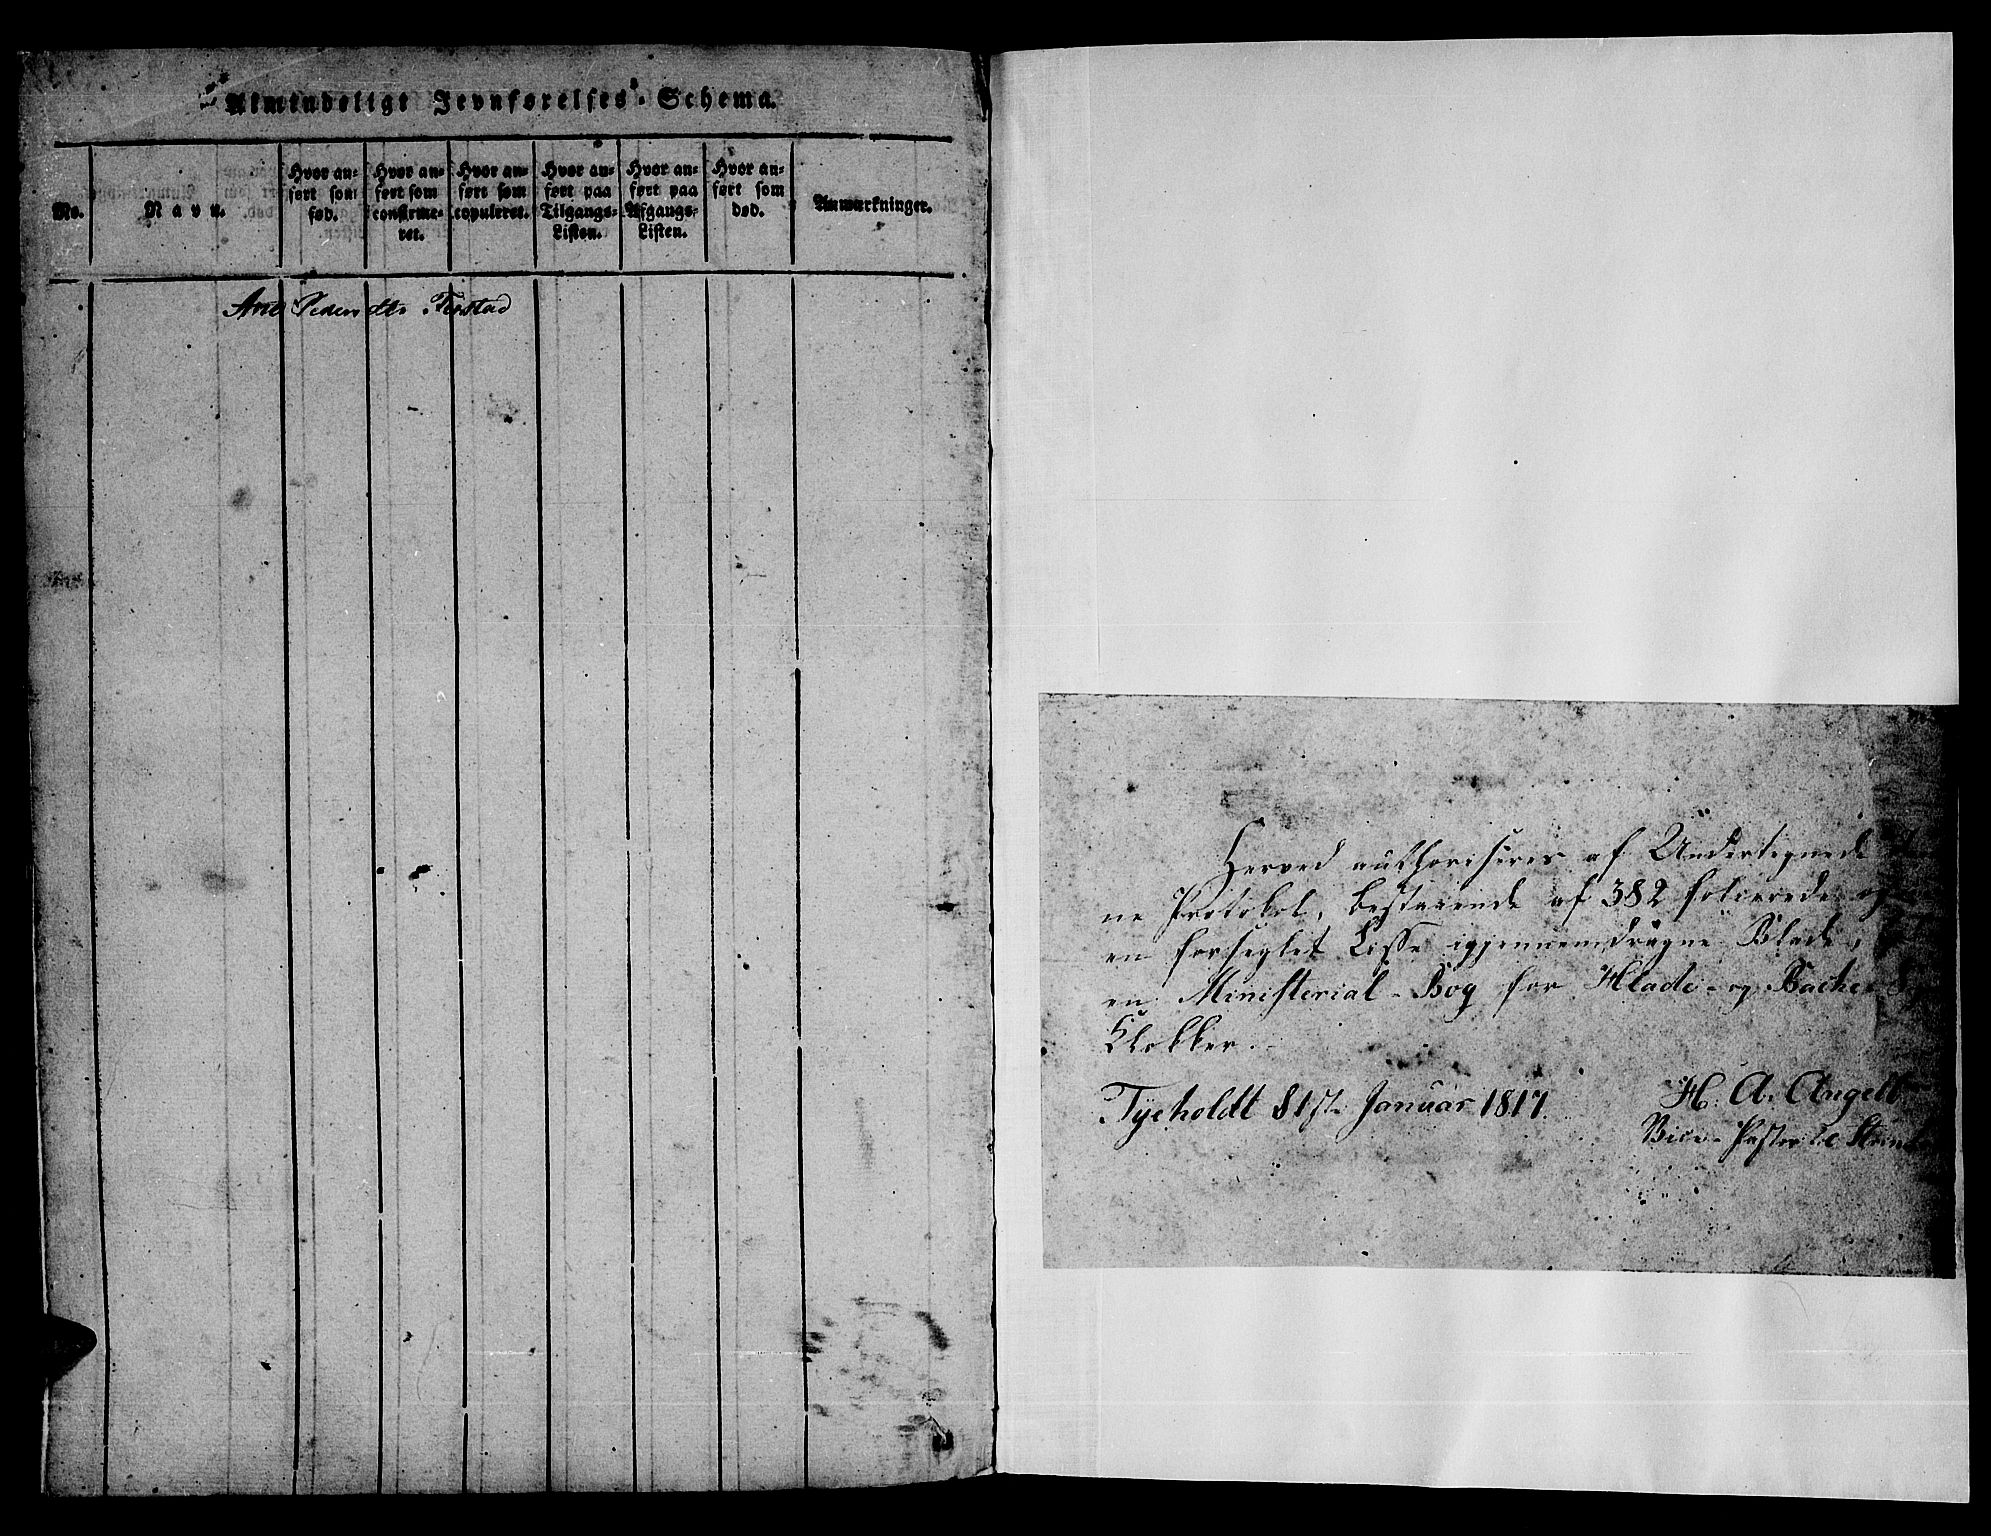 Almindeligt Jevnførelses-Schema.
No.
Navn.
Hvor an-
ført som
fød.
Hvor an-
ført som
confirme-
ret.
Hvor an-
ført som
copuleret.
Hvor an-
ført paa
Tilgangs-
Listen.
Hvor an-
ført paa
Afgangs-
Listen.
Hvor an-
ført som
død.
Anmærkninger.
Ane Pedersdtr
Herved authoriseres af Undertegnede
ne Protokol, bestaaende af 382 folierede og
en forseglet Lisse igjennemdragne Blade,
en Ministerial-Bog for Hlade- og Bache
Klokker.
Tyeholdt 31st Januar 1817.
H. A. Angell
Vice-Pastor